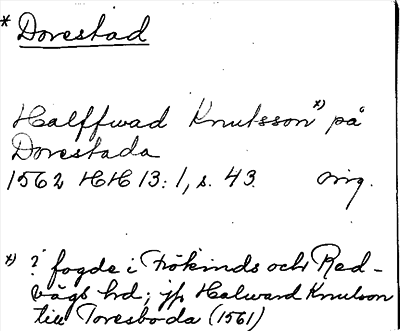 * Dorestad
Halffwad Knutsson *) på
Dorestada
1562 HH 13:1, s. 43. orig.
*) ? fogde i Frökinds och Red-
vägs hd; jfr Halward Knutson
till Toresboda (1561)